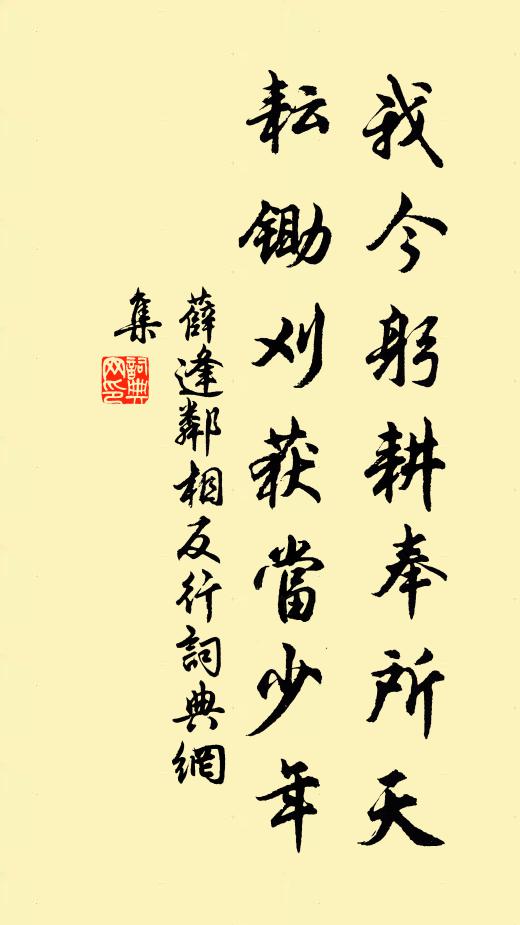 我今躬耕奉所天
耘锄刈获當少年
薛逢鄰相反行詞典網
集
詞典
网印